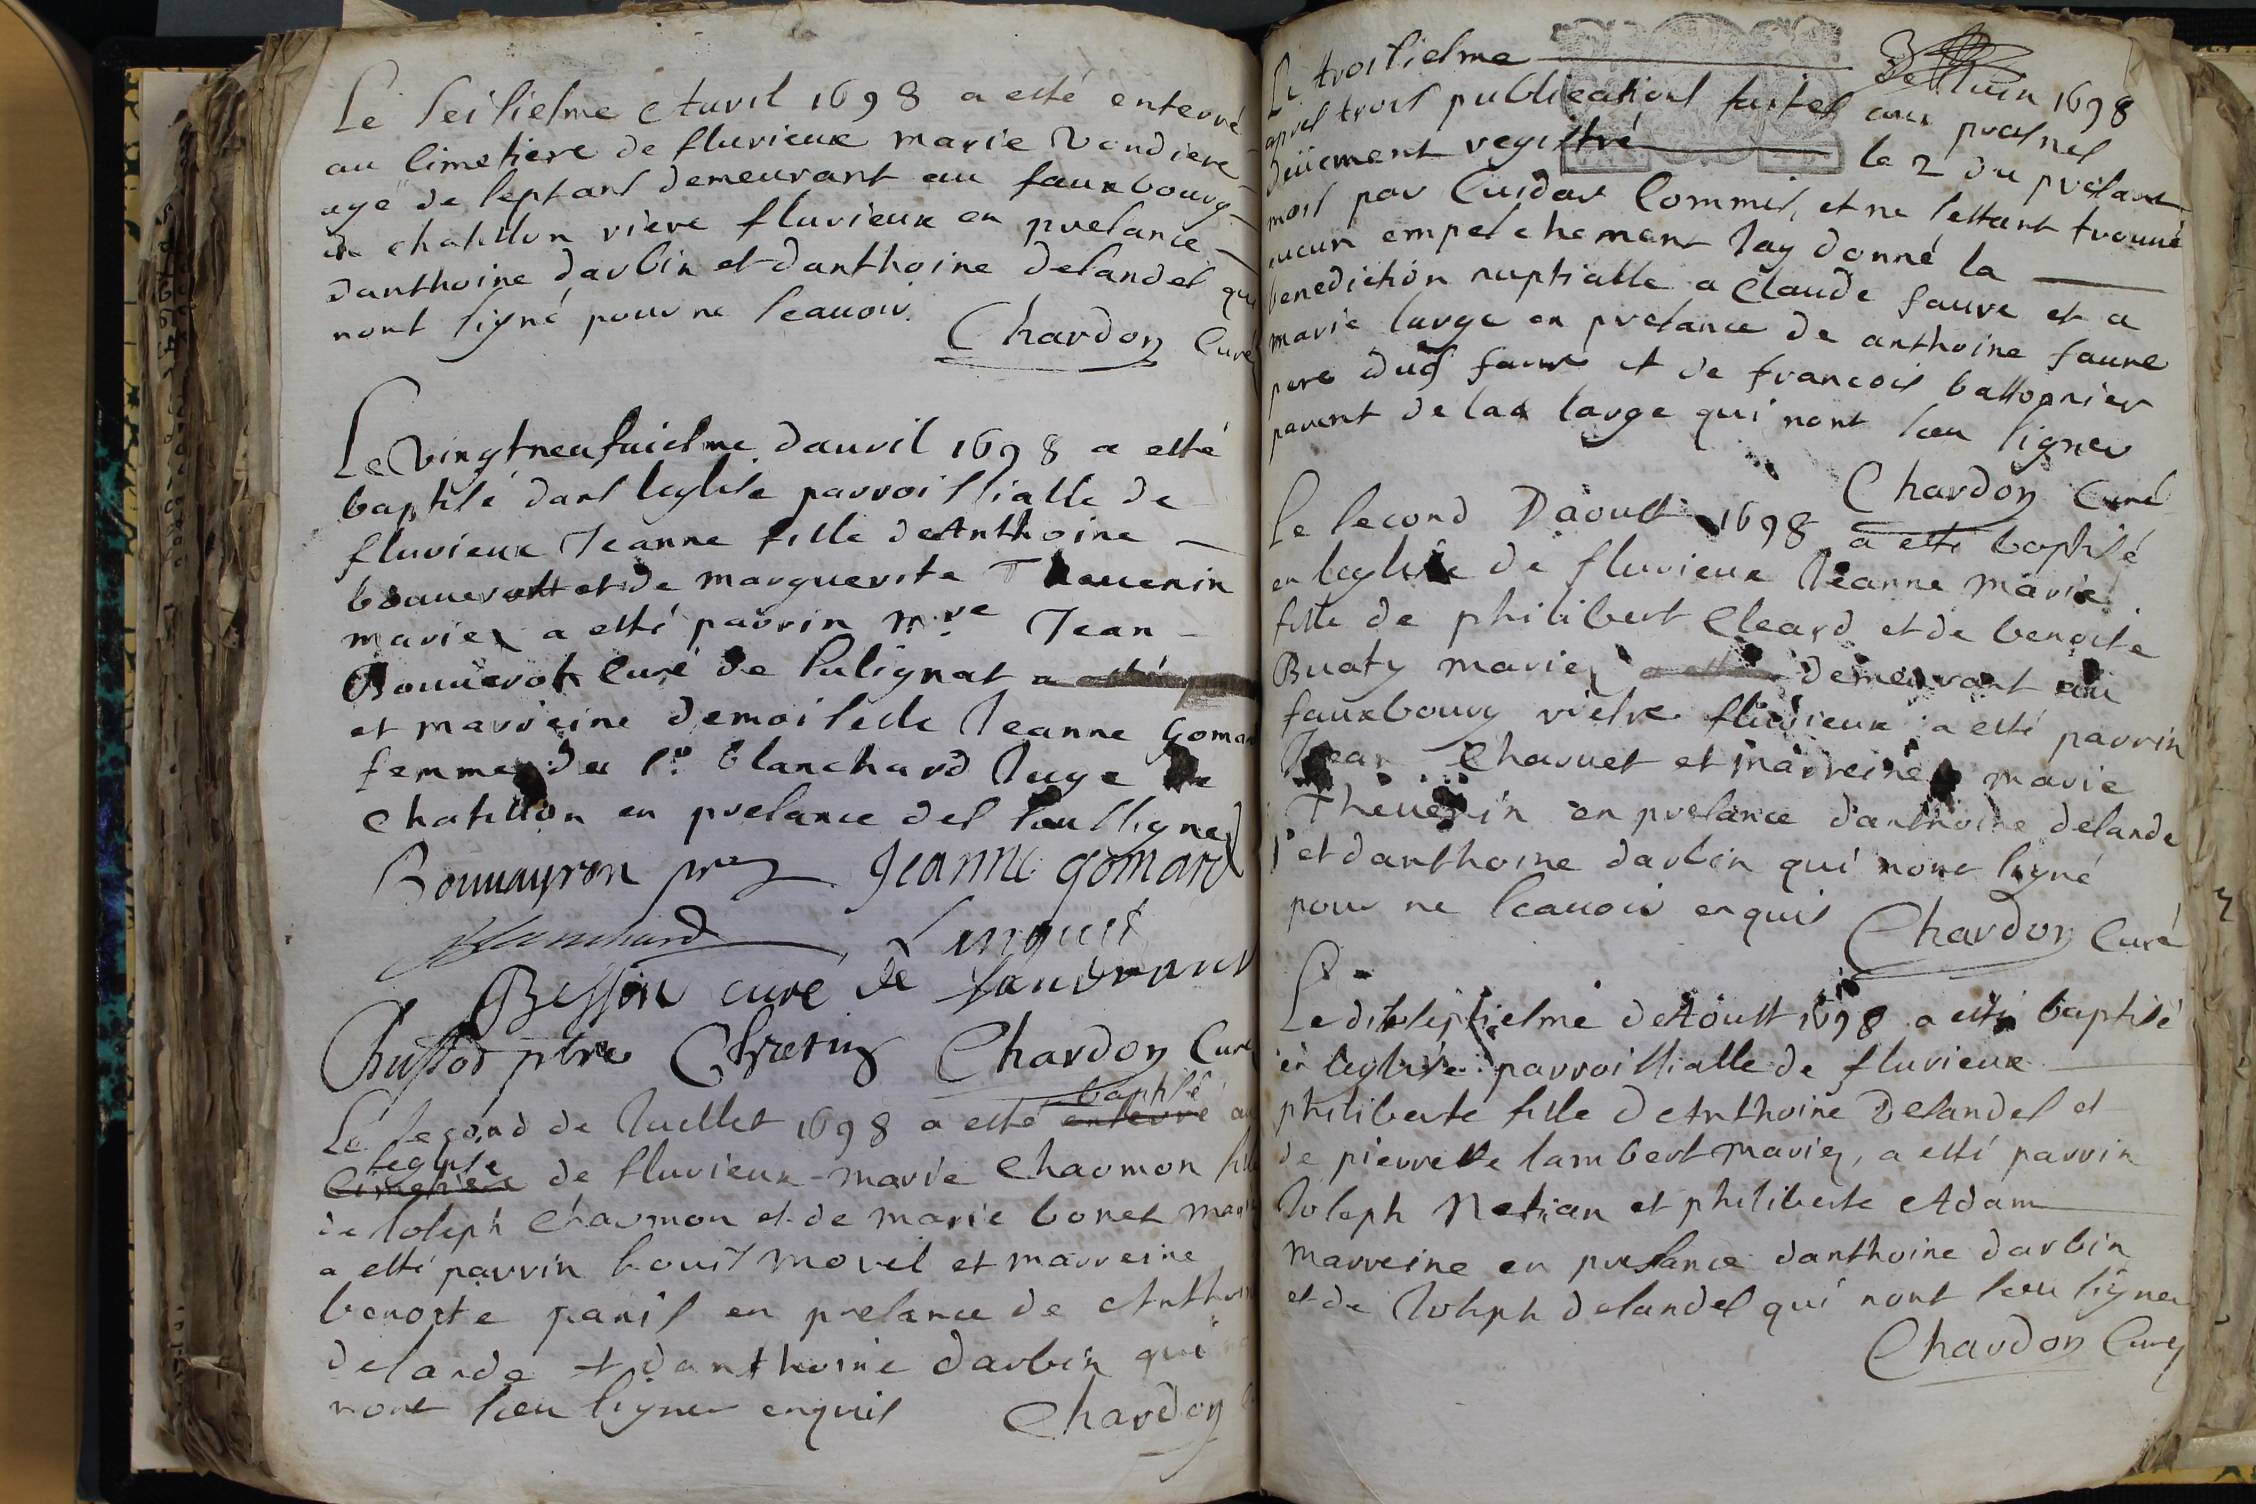 Le seisiesme Auril 1698 a esté enterré
au cimetiere de flurieux marie Vondiere
agé de sept ans demeurant au fauxbourg
de chatillon riere flurieux en presance
danthoine darbin et danthoine desandes qui
nont signé pour ne scauoir.
Chardon Curé
Le vingtneufuiesme dauril 1698 a esté
baptisé dans leglise parroissialle de
flurieux Jeanne fille de Anthoine
et de marguerite Theuenin
mariez a esté parrin mre Jean
Curé de Sulignat
et marreine demoiselle Jeanne Gomar
femme du Sr blanchard Juge de
chatillon en presance des soussignes
Bouuayron Jeanne gomard
Blanchard
Besson curé de Sandrans
ptre Chardon Curé
baptisé
Le second de Juillet 1698 a esté enterré au
leglise
cimetiere de flurieux marie Chaomon
de Joseph Chaomon et de marie bonet
a esté parrin louis morel et marreine
benoite panis en presance de Anthoine
desande et danthoine darbin qui
nont sceu signer enquis Chardon
Le troisiesme De Juin 1698
apres trois publications faites aux prosnes
duëment registré le 2 du presant
mois par Cuidat Commis, et ne sestant trouué
aucun empeschement Jay donné la
benediction nuptialle a Claude faure et a
marie large en presance de anthoine faure
pere dud faure et de francois
parent de lad large qui nont sceu signer
Chardon Curé
Le second Daoust 1698 a esté baptisé
en leglise de flurieux Jeanne marie
fille de philibert Cleard et de benoite
Buaty mariez demeurant au
fauxbourg flurieux a esté parrin
Jean Charuet et marreine marie
Theuenin en presance danthoine desande
et danthoine darbin qui nont signé
pour ne scauoir enquis Chardon Curé
Le dixseptiesme de Aoust 1698 a esté baptisé
en leglise parroissialle de flurieux
philiberte fille de Anthoine Desandes et
de pierrette lambert mariez, a esté parrin
Joseph Netian et philiberte Adam
marreine en presance danthoine darbin
et de Joseph desandes qui nont sceu signer
Chardon Curé